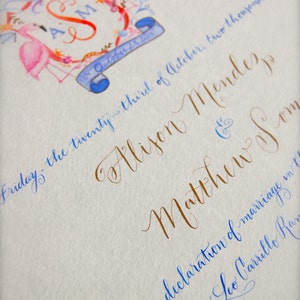 S
A M
Friday, the twenty-third of October, two thousand
Alison Mendez
&
Matthew Som
declaration of marriage in th
Leo Carrillo Ran